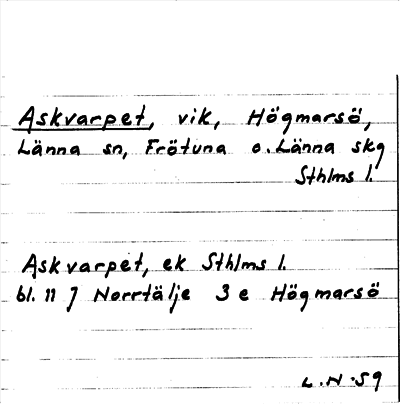 Askvarpet, vik, Högmarsö,
Länna sn, Frötuna o. Länna skg
Sthlms l.
Askvarpet, ek Sthlms l.
bl. 11 J Norrtälje 3 e Högmarsö
L.N.59